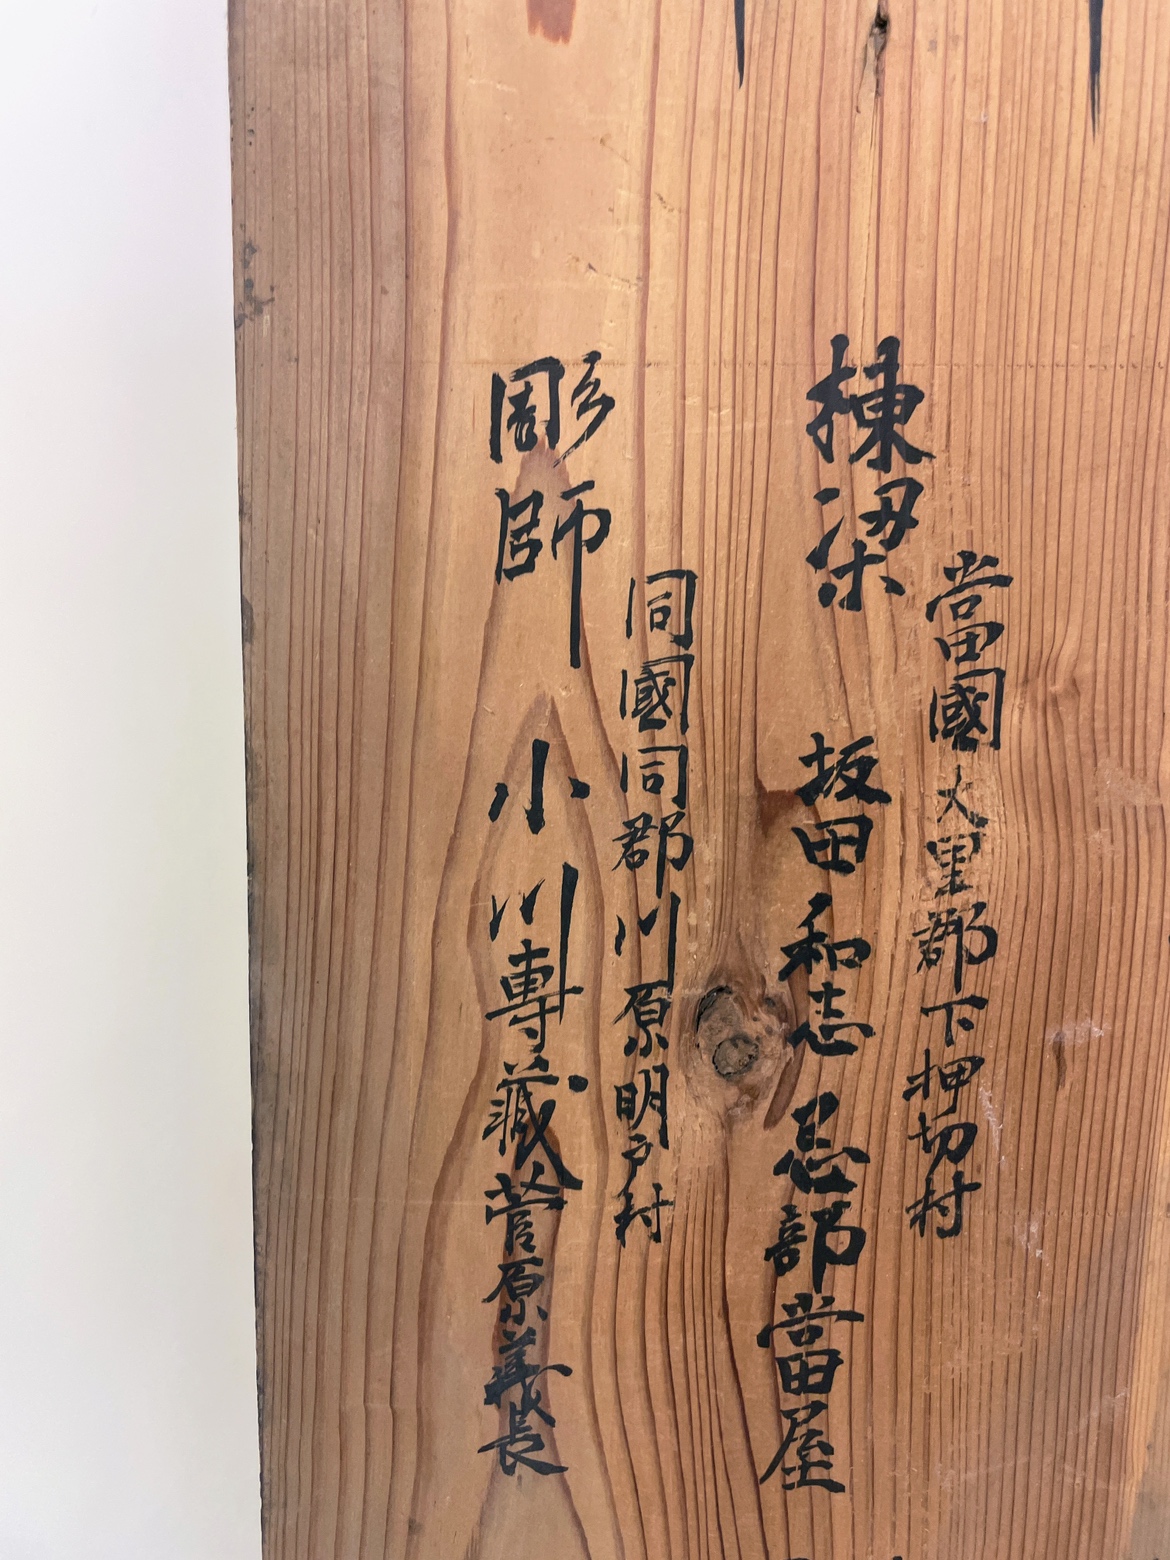 當國大里郡下押切村
棟梁 坂田和志 忌部當屋
同國同郡川原明戸村
彫師 小川專藏菅原義長